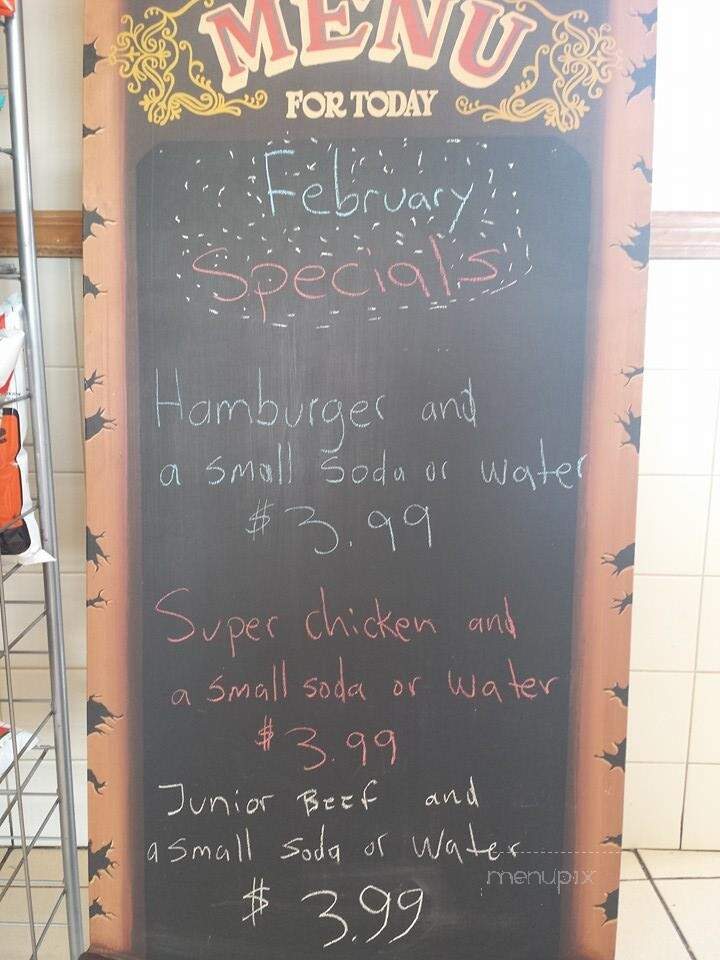 MENU
FOR TODAY
February
Specials
Hamburger and
a small soda or water
$3.99
Super chicken and
a small soda or water
$3.99
Junior Beef and
a small soda or water
$3.99
menupix